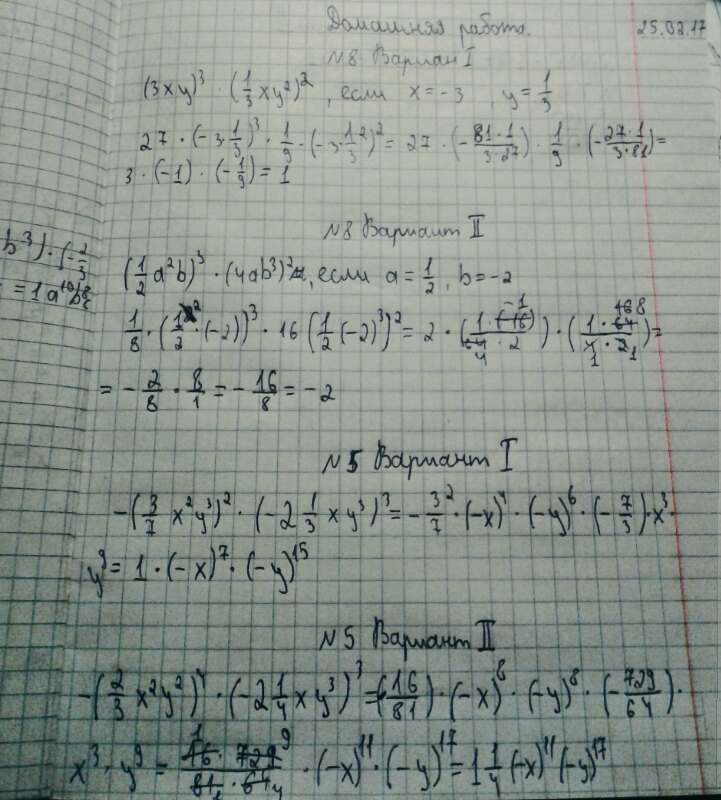 Домашняя работа.
25.02.17
N8 Вариан I
(3xy)³ · (1/3 xy²)², если x = -3, y = 1/3
27 · (-3·1/3)³ · 1/9 · (-3·1/3²)² = 27 · (-81·1/3·27) · 1/9 · (-27·1/3·81) =
3 · (-1) · (-1/9) = 1
N8 Вариант II
b³) · (-2/3
(1/2 a²b)³ · (4ab³)², если a = 1/2, b = -2
= 1a¹⁰b
1/8 · (1/2² · (-2))³ · 16 (1/2 (-2)³)² = 2 · (1·(-16)/64·2) · (1·64/1·2) =
= -2/8 · 8/1 = -16/8 = -2
N5 Вариант I
-(3/7 x²y³)² · (-2 1/3 xy³)³ = -3²/7 · (-x)⁴ · (-y)⁶ · (-7/3) · x³ ·
y⁹ = 1 · (-x)⁷ · (-y)¹⁵
N5 Вариант II
-(2/3 x²y²)⁴ · (-2 1/4 xy³)³ = (16/81) · (-x)⁸ · (-y)⁸ · (-729/64) ·
x³ · y⁹ = 16·729/81·64 · (-x)¹¹ · (-y)¹⁷ = 1 1/4 (-x)¹¹ (-y)¹⁷